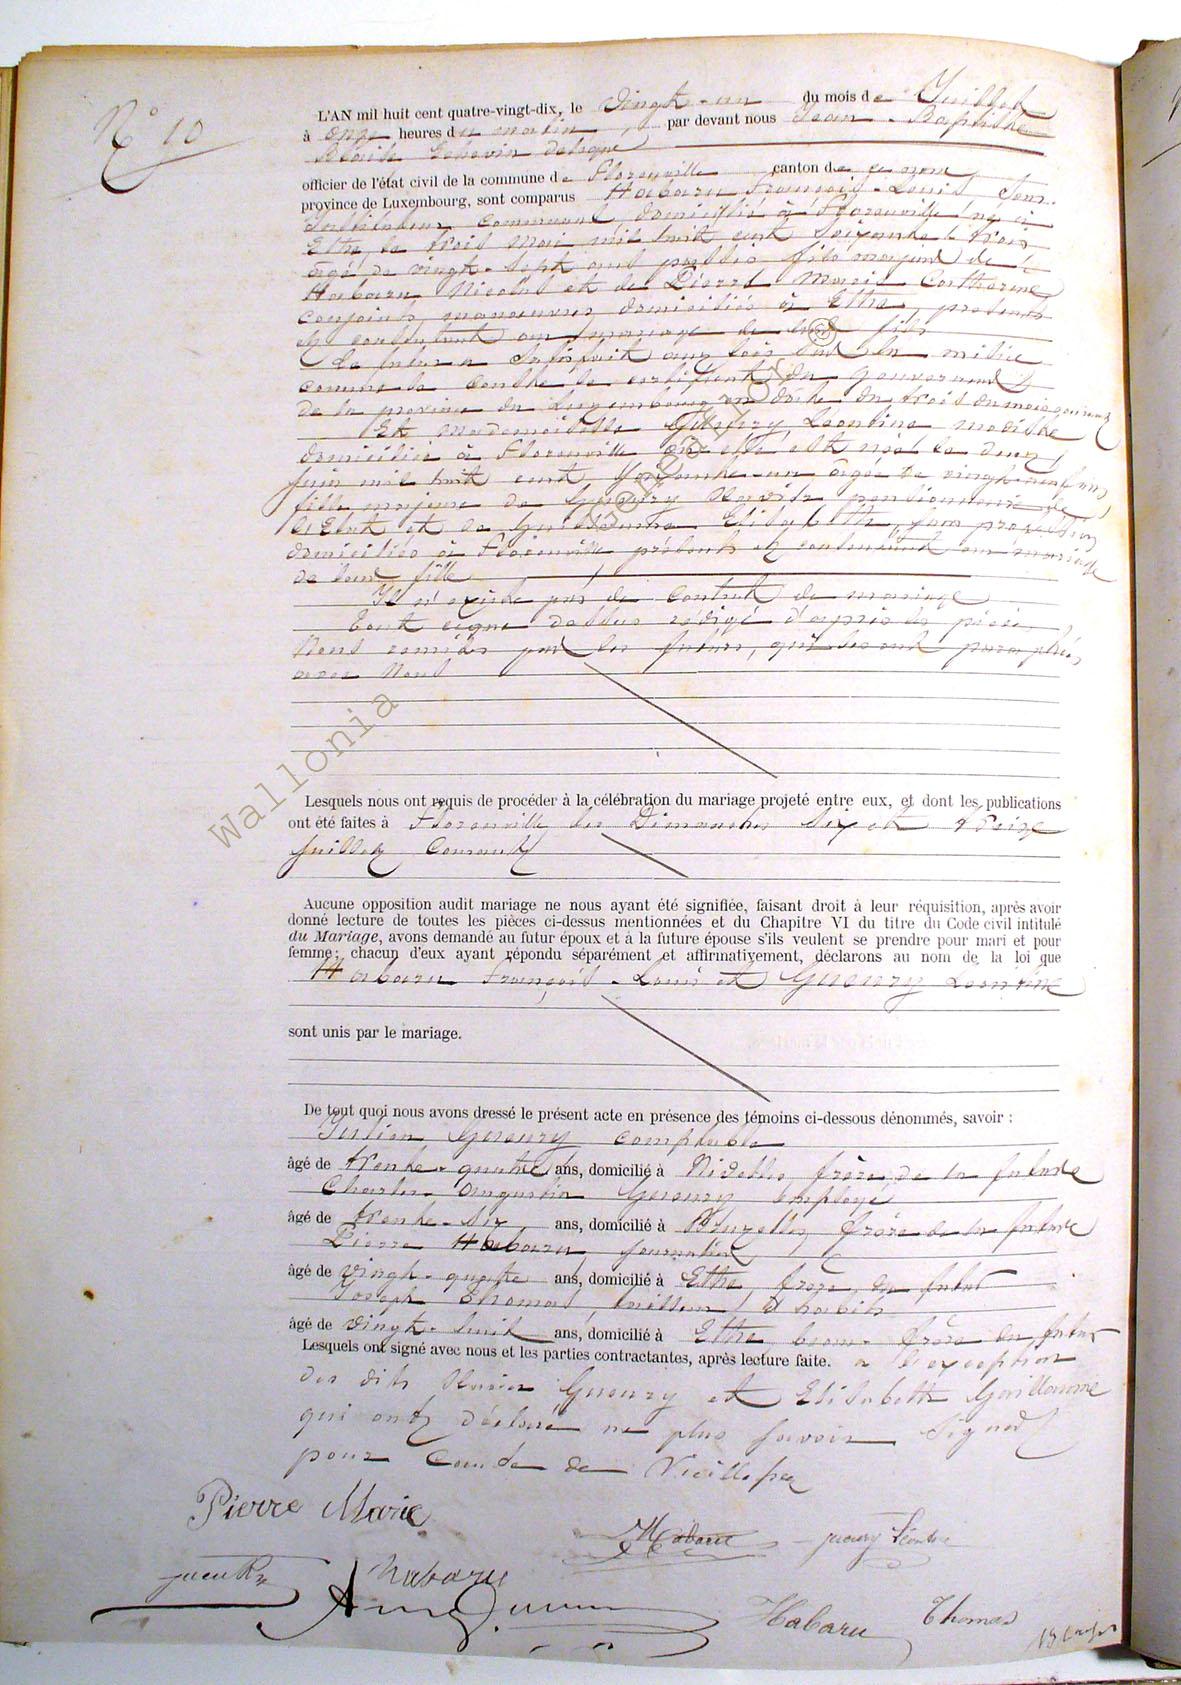 N° 10
L'AN mil huit cent quatre-vingt-dix, le vingt-un du mois de Juillet
à onze heures du matin, par devant nous Jean-Baptiste
Echevin délégué
officier de l'état civil de la commune de Florenville canton de ce nom
province de Luxembourg, sont comparus Habaru François-Louis, Sous-
Instituteur communal, domicilié à Florenville né à
Ethe, le trois Mai mil huit cent soixante-trois
âgé de vingt-sept ans passés fils majeur de
Habaru Nicolas et de Pierre Marie Catherine
conjoints, manoeuvres domiciliés à Ethe, présents
et consentant au mariage de leur fils
Le futur a satisfait aux lois sur la milice
comme le constate le certificat du gouverneur
de la province du Luxembourg en date du trois du mois courant
Et Mademoiselle Gueury Léontine modiste
domiciliée à Florenville où elle est née le deux
Juin mil huit cent soixante-un âgée de vingt-neuf ans
fille majeure de Gueury Xavier pensionnaire de
l'Etat et de Guillaume Elisabeth, sans profession
domiciliés à Florenville, présents et consentant au mariage
de leur fille
Il n'existe pas de contrat de mariage
Tout ce que dessus rédigé d'après les pièces
Nous remises par les futurs, qui les ont paraphées
avec Nous
Lesquels nous ont requis de procéder à la célébration du mariage projeté entre eux, et dont les publications
ont été faites à Florenville les Dimanches six et treize
Juillet Courant
Aucune opposition audit mariage ne nous ayant été signifiée, faisant droit à leur réquisition, après avoir
donné lecture de toutes les pièces ci-dessus mentionnées et du Chapitre VI du titre du Code civil intitulé
du Mariage, avons demandé au futur époux et à la future épouse s'ils veulent se prendre pour mari et pour
femme; chacun d'eux ayant répondu séparément et affirmativement, déclarons au nom de la loi que
Habaru François-Louis et Gueury Léontine
sont unis par le mariage.
De tout quoi nous avons dressé le présent acte en présence des témoins ci-dessous dénommés, savoir :
Julien Gueury comptable
âgé de trente-quatre ans, domicilié à Nivelles, frère de la future
Charles Augustin Gueury employé
âgé de trente-six, ans, domicilié à Bruxelles, frère de la future
Pierre Habaru, journalier,
âgé de vingt-quatre ans, domicilié à Ethe, frère du futur
Joseph Thomas, tailleur d'habits
âgé de vingt-huit ans, domicilié à Ethe beau-frère du futur
Lesquels ont signé avec nous et les parties contractantes, après lecture faite. à l'exception
des dits Xavier Gueury et Elisabeth Guillaume
qui ont déclaré ne plus savoir signer
pour cause de vieillesse
Pierre Marie
Habaru
gueury Léontine
Habaru
Habaru
Thomas
Wallonia